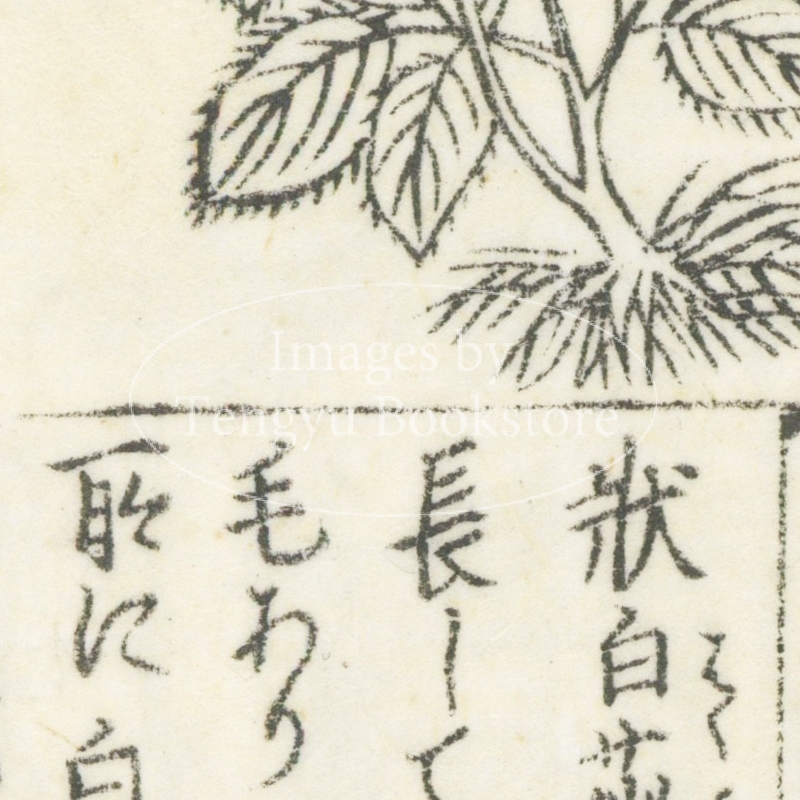 Images by
Tengyu Bookstore
狀白
長して
毛あり
所に白